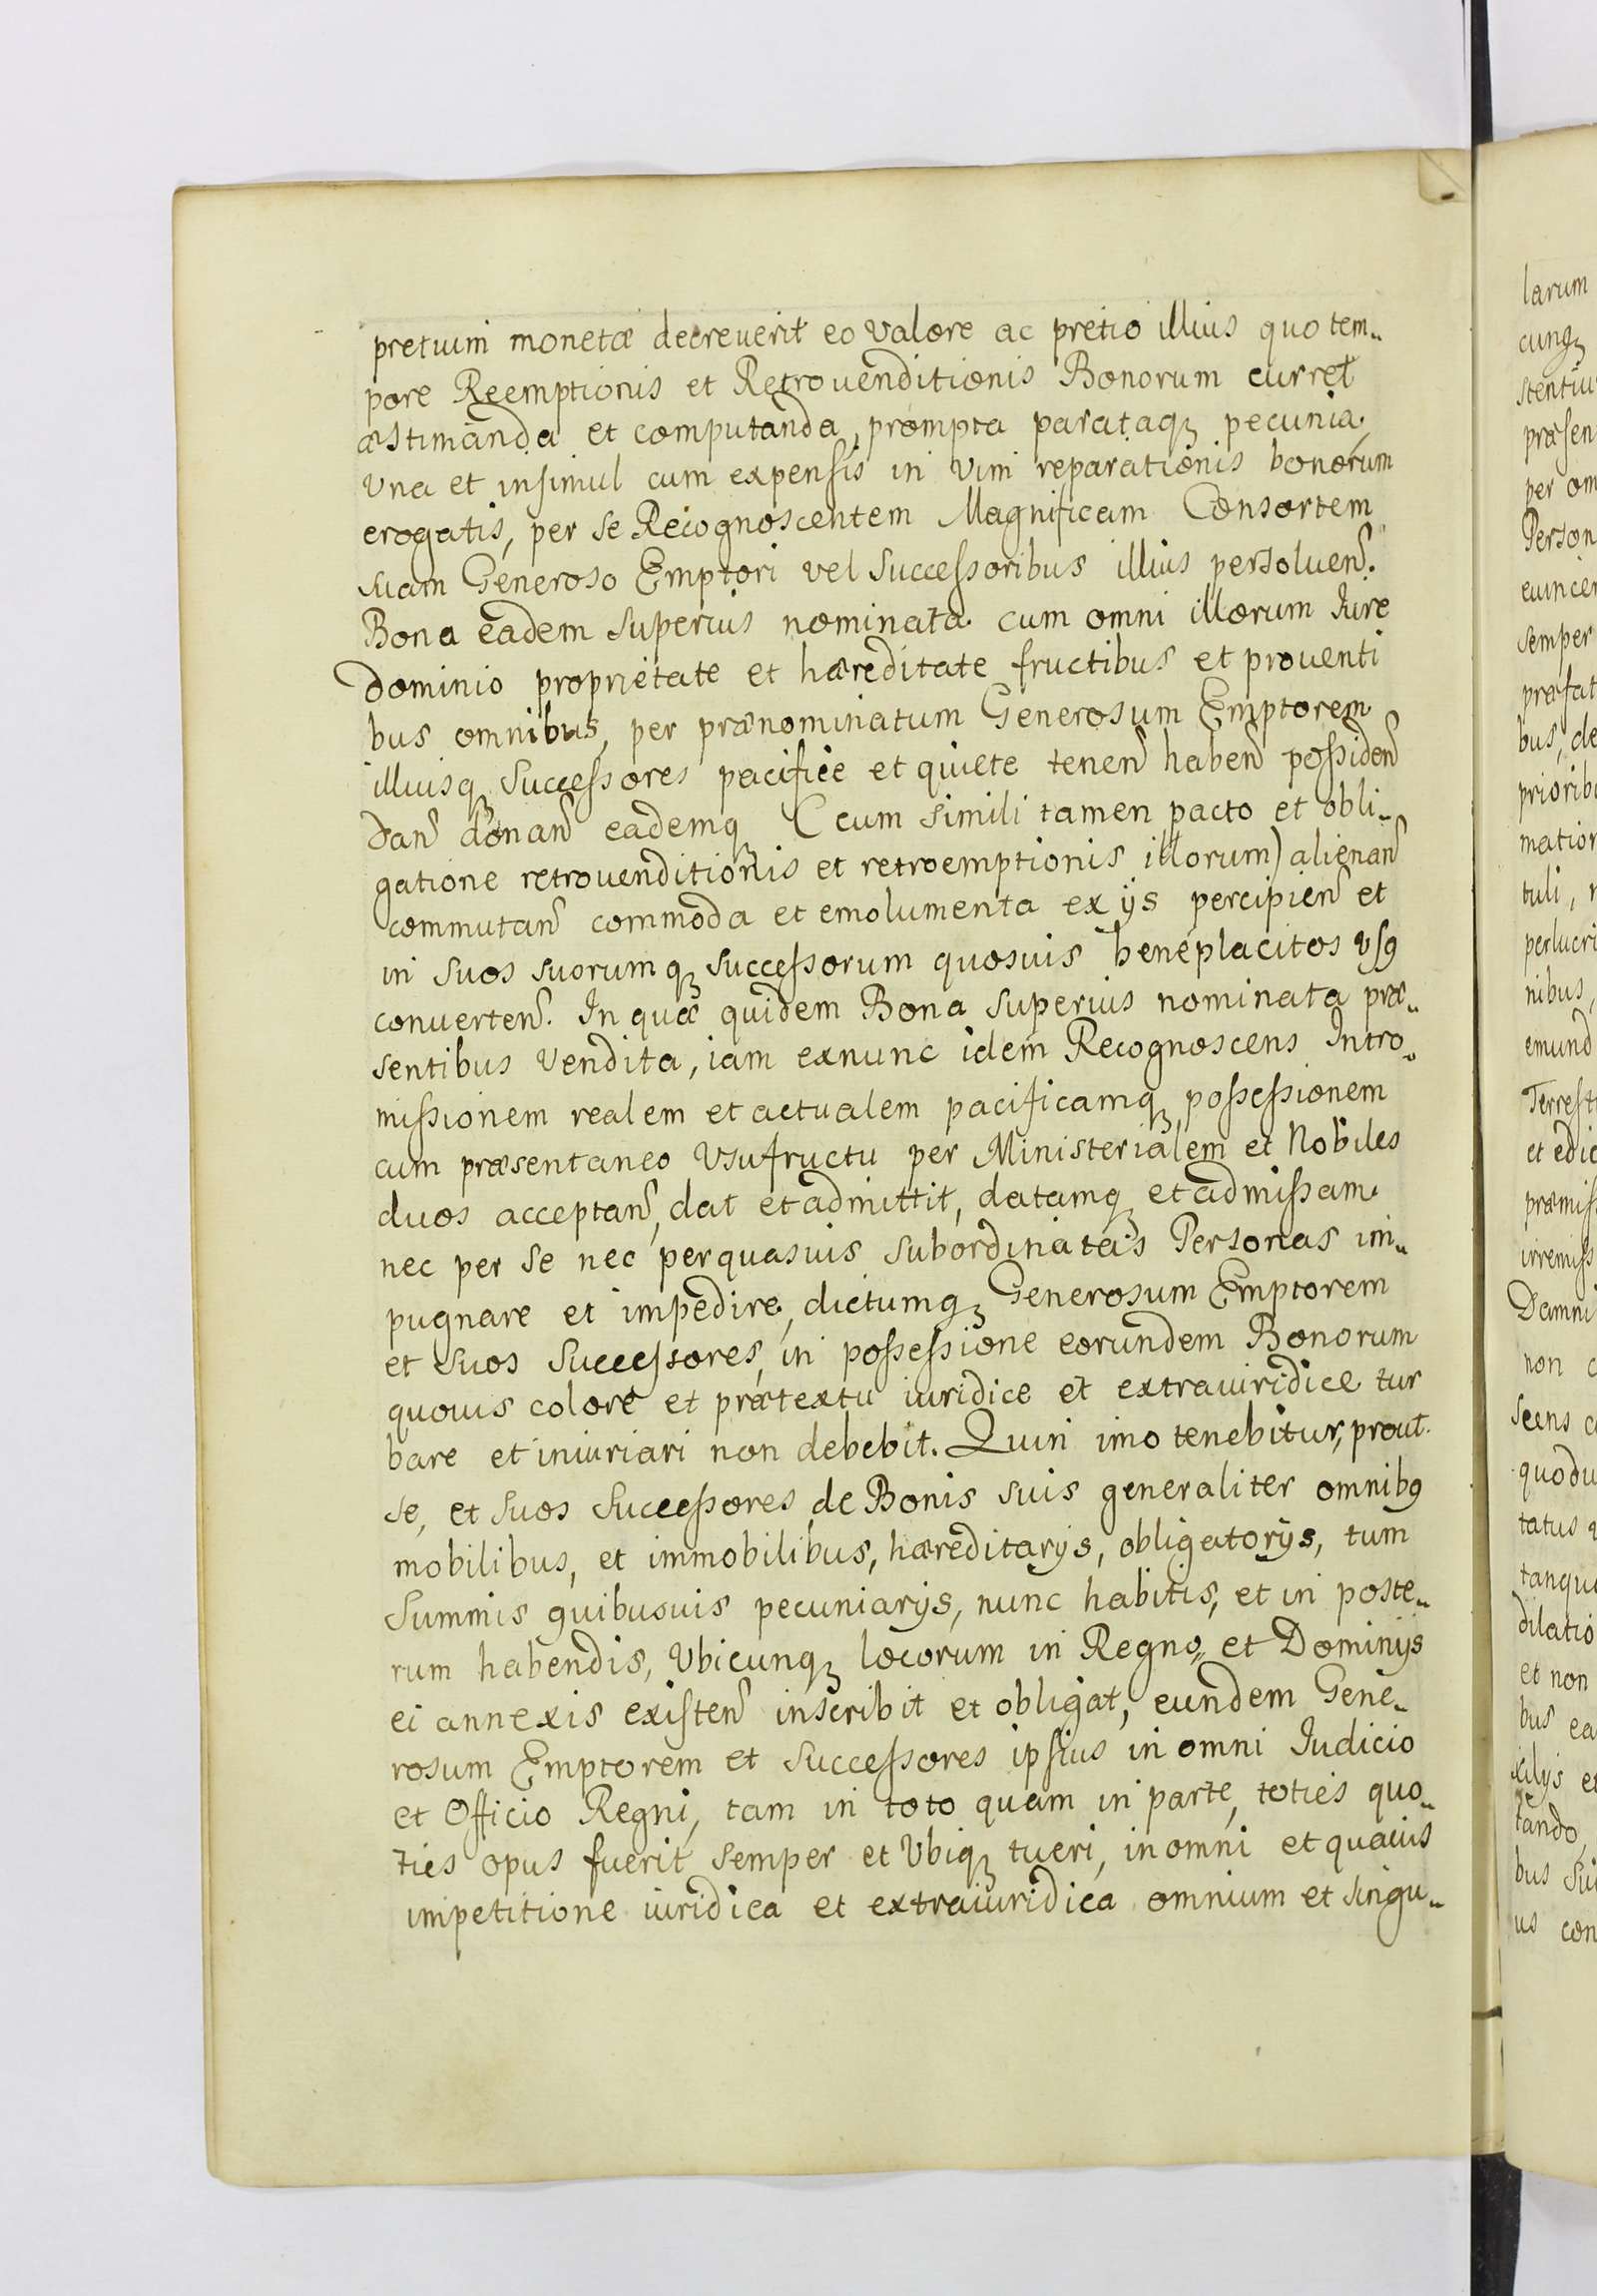 pretium monetæ decreuerit eo valore ac pretio illius quo tem„
pore Reemptionis et Retrouenditionis Bonorum curret
æstimanda et computanda, prompta parataqȝ pecunia,
Vna et insimul cum expensis in vim reparationis bonorum
erogatis, per se Recognoscentem Magnificam Consortem
suam Generoso Emptori vel Successoribus illius persoluen̄.
Bona eadem superius nominata cum omni illorum Iure
dominio proprietate et hæreditate fructibus et prouenti
bus omnibus, per prænominatum Generosum Emptorem
illiusqȝ Successores pacifice et quiete tenen̄ haben̄ possiden̄
dan̄ donan̄ eademqȝ (cum simili tamen pacto et obli„
gatione retrouenditionis et retroemptionis illorum) alienan̄
commutan̄ commoda et emolumenta ex ijs percipien̄ et
in suos suorumqȝ successorum quosuis beneplacitos vsꝯ
conuerten̄. In quæ quidem Bona superius nominata præ„
sentibus Vendita, iam exnunc idem Recognoscens Intro„
missionem realem et actualem pacificamqȝ possessionem
cum præsentaneo Vsufructu per Ministerialem et Nobiles
duos acceptan̄, dat et admittit, datamqȝ et admissam
nec per se nec per quasuis subordinatas Personas im„
pugnare et impedire, dictumqȝ Generosum Emptorem
et suos Successores, in possessione eorundem Bonorum
quouis colore et prætextu iuridice et extraiuridice tur
bare et iniuriari non debebit. Quin imo tenebitur, prout
se, et suos Successores de Bonis suis generaliter omnibꝯ
mobilibus, et immobilibus, hæreditarijs, obligatorijs, tum
Summis quibusuis pecuniarijs, nunc habitis, et in poste„
rum habendis, Vbicunqȝ locorum in Regno, et Dominijs
ei annexis existen̄ inscribit et obligat, eundem Gene„
rosum Emptorem et Successores ipsius in omni Iudicio
et Officio Regni, tam in toto quam in parte, toties quo„
ties opus fuerit semper et Vbiqȝ tueri, in omni et quauis
impetitione iuridica et extraiuridica omnium et singu„
larum
cunqȝ
præsen
per om
Person
semper
præfat
bus, de
prioribu
mation
tuli,
nibus,
emund
Terrest
et edic
præmiss
irremiss
Damni
non c
scens
quodu
tatus
tanqua
dilatio
et non
bus ea
tando,
bus sui
us con